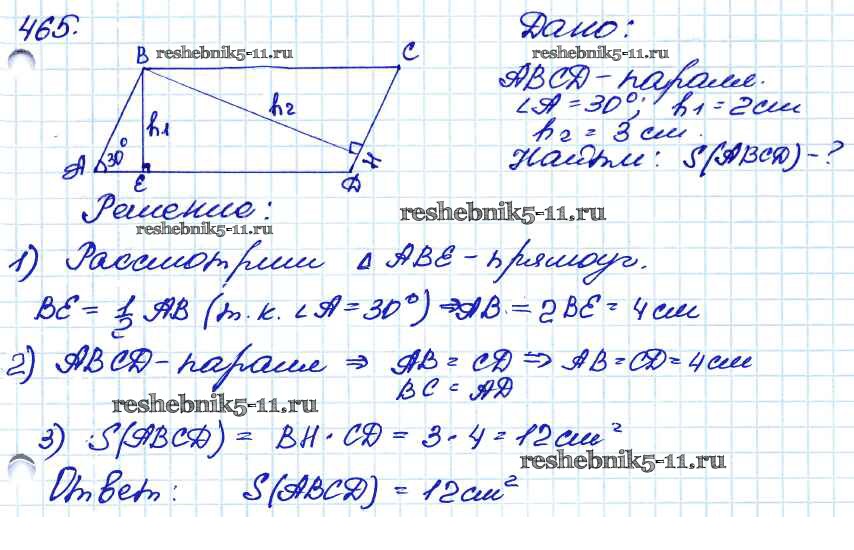 465.
Дано:
reshebnik5-11.ru
reshebnik5-11.ru
B
C
ABCD - паралл.
∠A = 30°; h1 = 2см
h2
h1
h2 = 3 см.
30°
A
E
D
H
Найти: S(ABCD) - ?
Решение:
reshebnik5-11.ru
reshebnik5-11.ru
1) Рассмотрим △ ABE - прямоуг.
BE = 1/2 AB (т.к. ∠A = 30°) ⇒ AB = 2BE = 4 см
2) ABCD - паралл ⇒ AB = CD ⇒ AB = CD = 4 см
BC = AD
reshebnik5-11.ru
3) S(ABCD) = BH · CD = 3 · 4 = 12 см²
reshebnik5-11.ru
Ответ: S(ABCD) = 12 см²